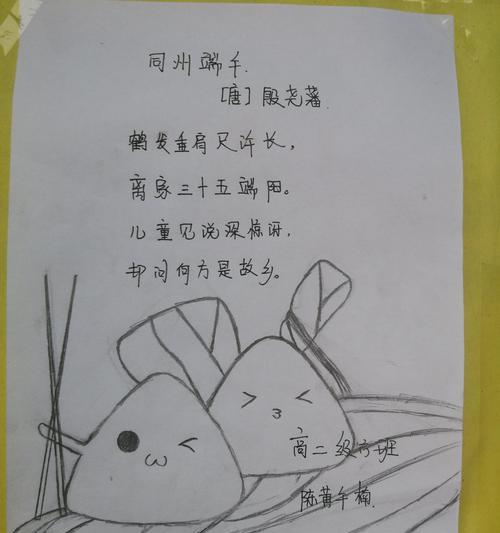 同州端午.
[唐]殷尧藩.
鹤发垂肩尺许长,
离家三十五端阳。
儿童见说深惊讶,
却问何方是故乡。
高二级六班